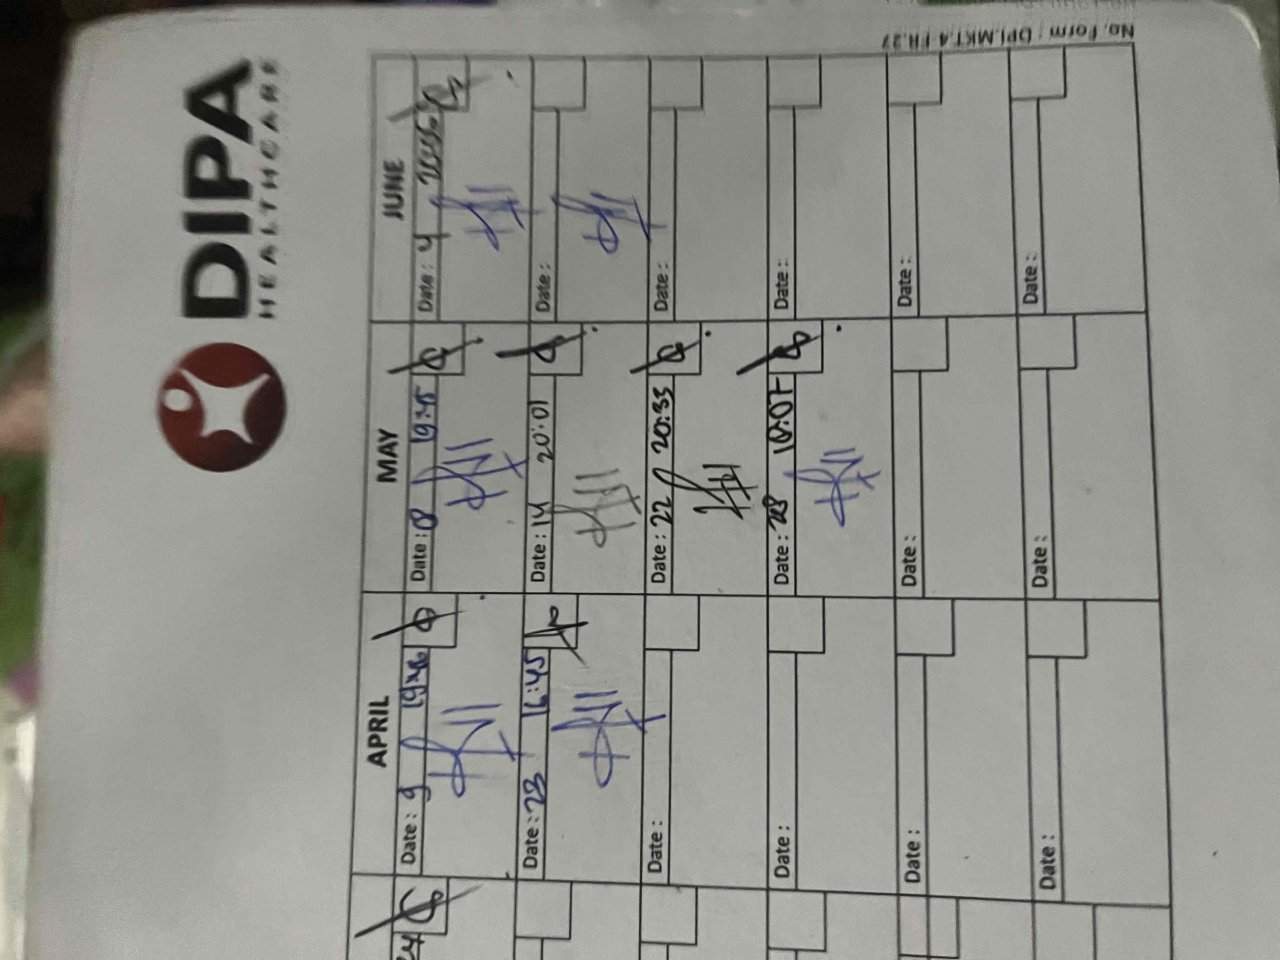 No. Form : DPI.MKT.4-FR.27
DIPA
HEALTHCARE
APRIL MAY JUNE
Date : 9 Date : 8 Date : 4
Date : 23 16:45 Date : 14 20:01 Date :
Date : Date : 22 20:33 Date :
Date : Date : 28 Date :
Date : Date : Date :
Date : Date : Date :